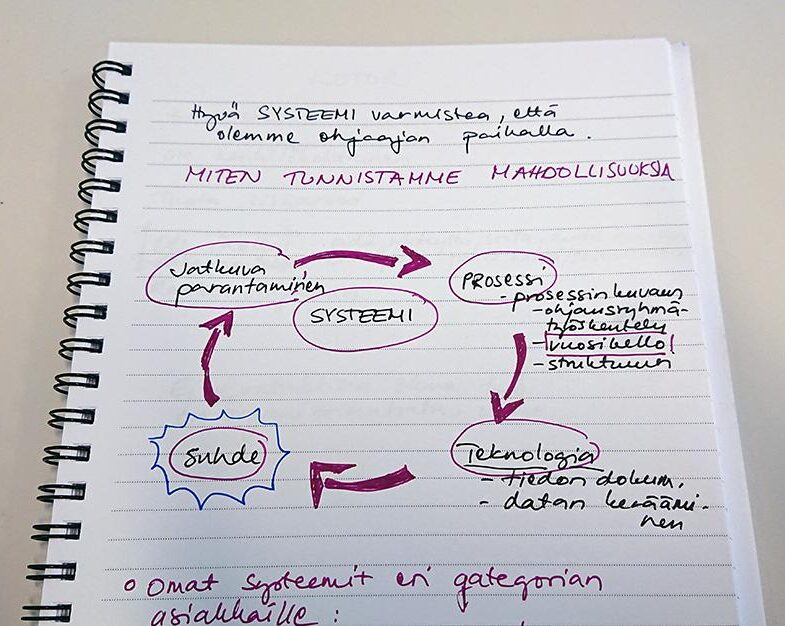 Hyvä SYSTEEMI varmistaa, että
olemme ohjaajan paikalla.
MITEN TUNNISTAMME MAHDOLLISUUKSIA
Jatkuva
parantaminen
SYSTEEMI
PROSESSI
- prosessin kuvaus
- ohjausryhmä-
työskentely
- vuosikello!
- struktuuri
Teknologia
- tiedon dokum.
- datan keräämi-
nen
Suhde
o Omat systeemit eri gategorian
asiakkaille :